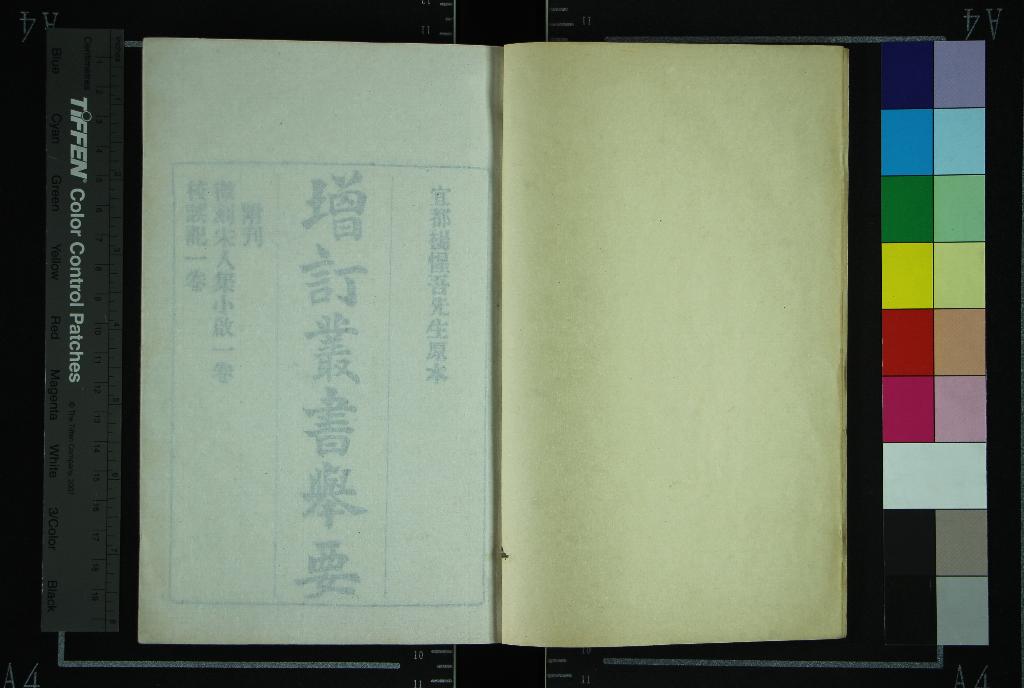 宜都楊惺吾先生原本
增訂叢書舉要
附刊
宋人集小啟一卷
校誤記一卷
TIFFEN® Color Control Patches
© The Tiffen Company, 2007
Centimetres
Inches
Blue
Cyan
Green
Yellow
Red
Magenta
White
3/Color
Black
A4
A4
A4
A4